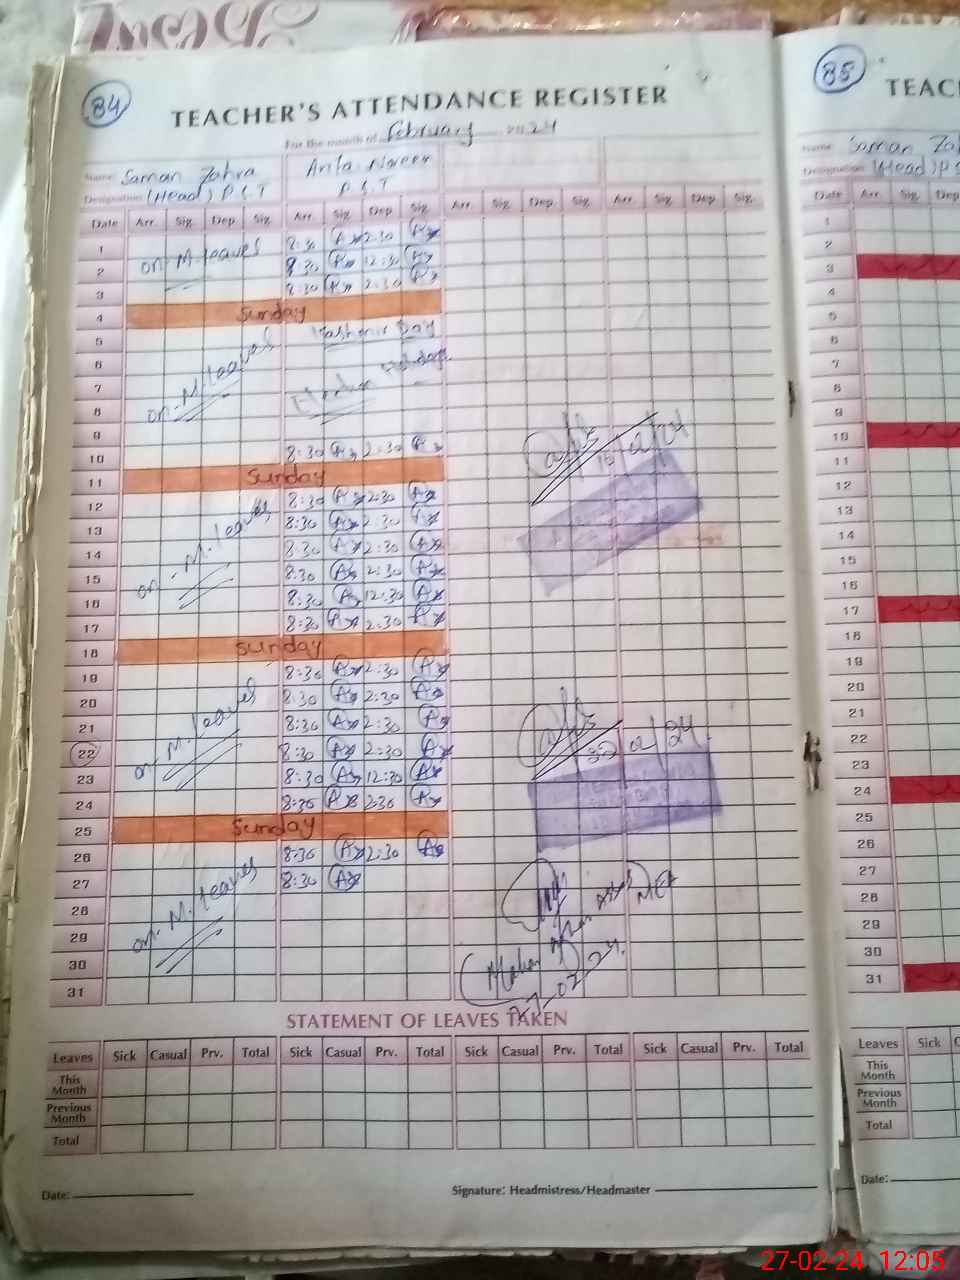 84
TEACHER'S ATTENDANCE REGISTER
For the month of February 2024
Name: Saman Zahra
Designation: (Head) P.S.T P.S.T
Date Arr. Sig. Dep. Sig. Arr. Sig. Dep. Sig. Arr. Sig. Dep. Sig. Arr. Sig. Dep. Sig.
1 on M.leaves 8:30 2:30
2 8:30 12:30
3 8:30 2:30
4 Sunday
5 Kashmir Day
6 on M.leaves
7 Election Holidays
8
9
10 8:30 2:30
11 Sunday
12 8:30 2:30
13 8:30 2:30
14 on M.leaves 8:30 2:30
15 8:30 2:30
16 8:30 12:30
17 8:30 2:30
18 Sunday
19 8:30 2:30
20 8:30 2:30
21 on M.leaves 8:30 2:30
22 8:30 2:30
23 8:30 12:30
24 8:30 2:30
25 Sunday
26 8:30 2:30
27 8:30
28 on M.leaves
29
30
31
27-02-24.
STATEMENT OF LEAVES TAKEN
Leaves Sick Casual Prv. Total Sick Casual Prv. Total Sick Casual Prv. Total Sick Casual Prv. Total
This Month
Previous Month
Total
Date:
Signature: Headmistress/Headmaster
85
TEAC
Name: Saman Zah
Designation: (Head) PS
Date Arr. Sig. Dep
1
2
3
4
5
6
7
8
9
10
11
12
13
14
15
16
17
18
19
20
21
22
23
24
25
26
27
28
29
30
31
Leaves Sick C
This Month
Previous Month
Total
Date:
27-02-24 12:05